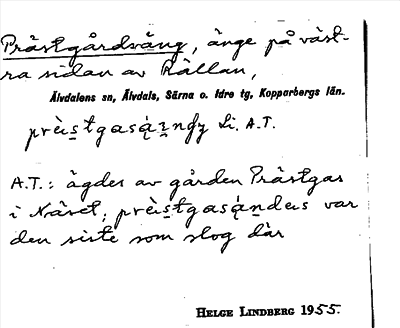 Prästgårdsväng, änge på väst-
ra sidan av Rällan,
Älvdalens sn, Älvdals, Särna o. Idre tg, Kopparbergs län.
Li. A.T.
A.T.: ägdes av gården Prästgas
i Näset; var
den siste som slog där
HELGE LINDBERG 1955.